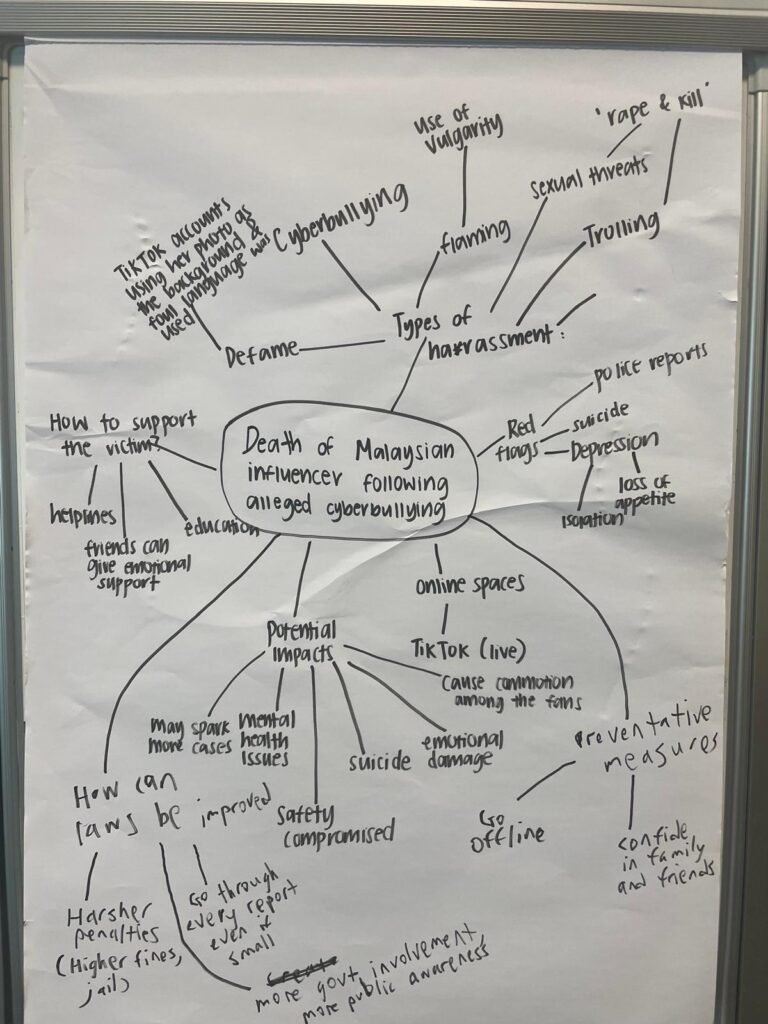 Use of
vulgarity
'rape & kill'
sexual threats
Trolling
flaming
Cyberbullying
TikTok accounts
using her photo as
the background &
foul language was
used
Defame
Types of
harrassment:
Red
flags
police reports
suicide
Depression
loss of
appetite
isolation
How to support
the victim?
helplines
friends can
give emotional
support
education
Death of Malaysian
influencer following
alleged cyberbullying
online spaces
TikTok (live)
Potential
impacts
cause commotion
among the fans
may spark
more cases
mental
health
issues
suicide
emotional
damage
Safety
compromised
Preventative
measures
Go
offline
confide
in family
and friends
How can
laws be improved
Harsher
penalties
(Higher fines,
jail)
Go through
every report
even if
small
create
more govt involvement,
more public awareness